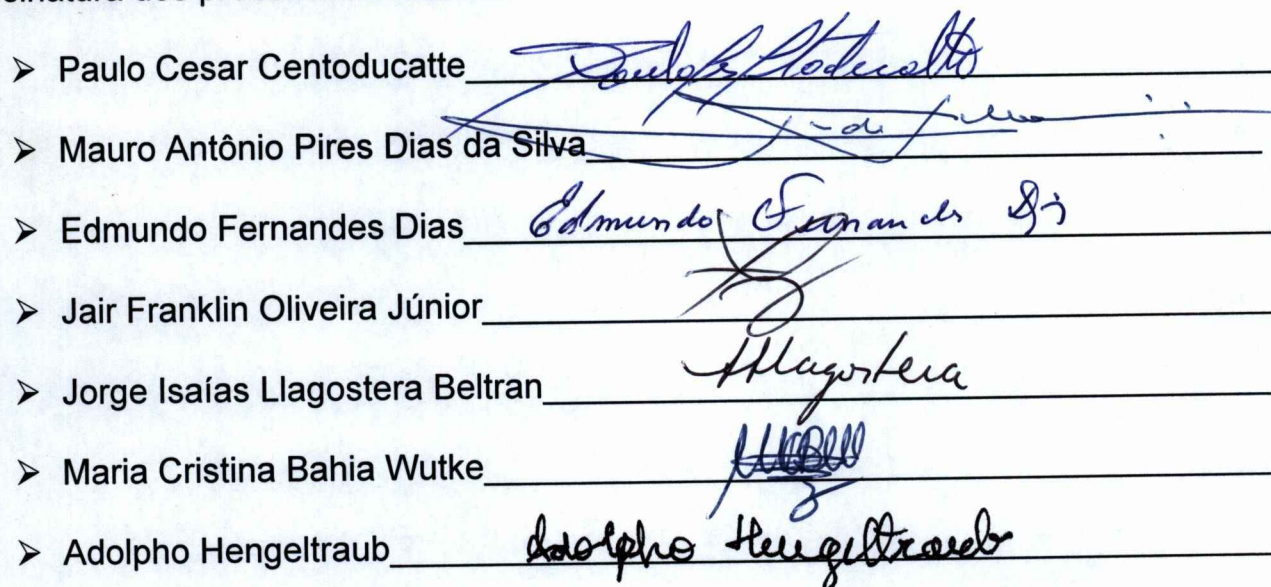 ➢ Paulo Cesar Centoducatte
➢ Mauro Antônio Pires Dias da Silva
➢ Edmundo Fernandes Dias Edmundo Fernandes
➢ Jair Franklin Oliveira Júnior
➢ Jorge Isaías Llagostera Beltran Llagostera
➢ Maria Cristina Bahia Wutke
➢ Adolpho Hengeltraub Adolpho Hengeltraub